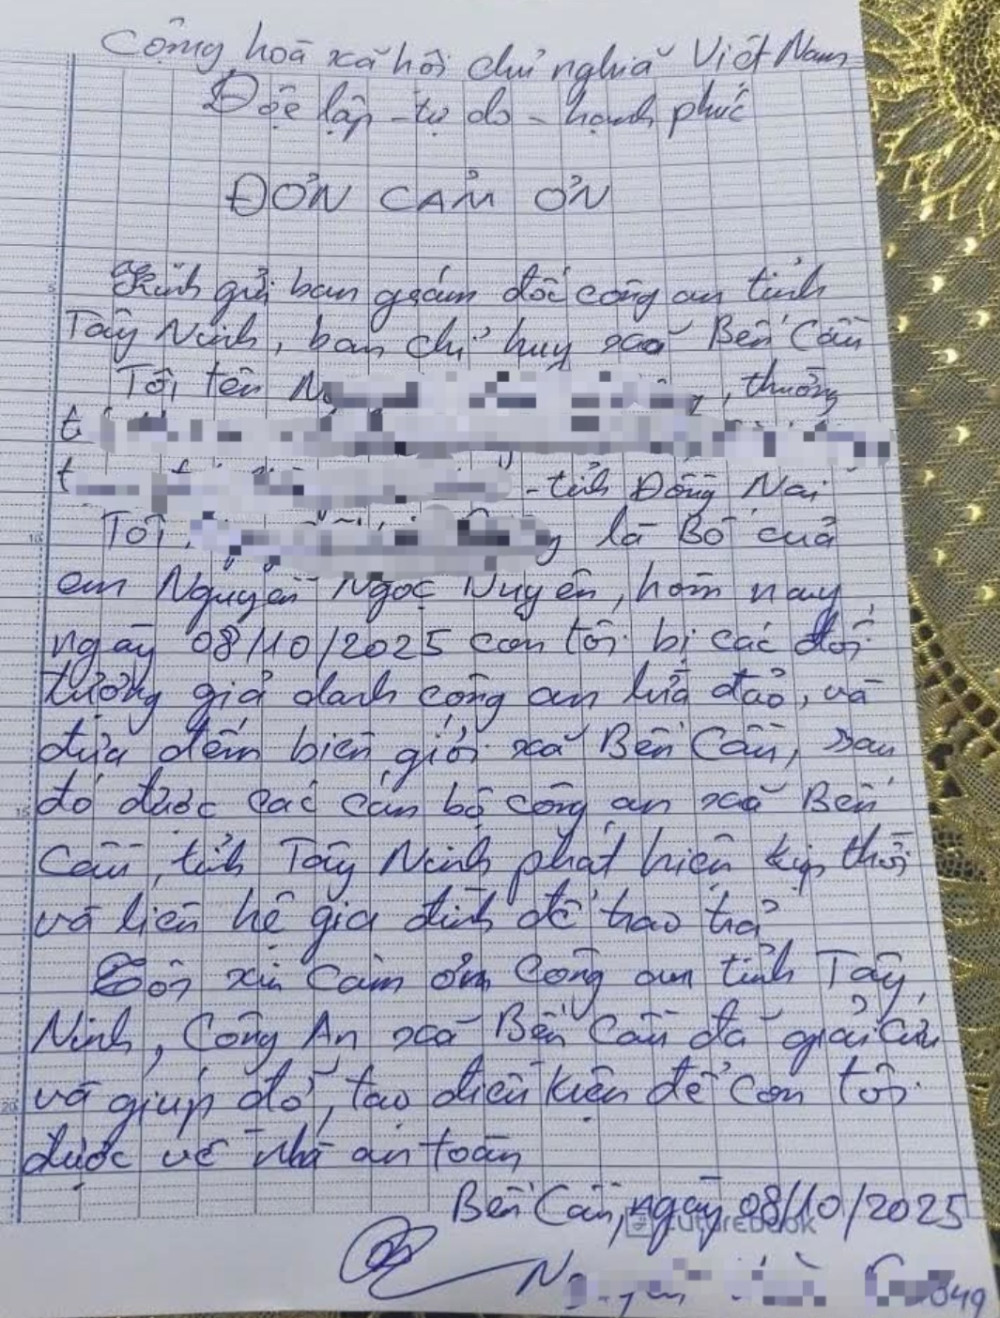 Cộng hoà xã hội chủ nghĩa Việt Nam
Độc lập - tự do - hạnh phúc
ĐƠN CẢM ƠN
Kính gửi ban giám đốc công an tỉnh
Tây Ninh, ban chỉ huy xã Bến Cầu
Tôi tên, thường
- tỉnh Đồng Nai
Tôi, là Bố của
em Nguyễn Ngọc Nuyên, hôm nay
ngày 08/10/2025 con tôi bị các đối
tượng giả danh công an lừa đảo, và
đưa đến biên giới xã Bến Cầu, sau
đó được các cán bộ công an xã Bến
Cầu, tỉnh Tây Ninh phát hiện kịp thời
và liên hệ gia đình để trao trả
Tôi xin Cảm ơn Công an tỉnh Tây
Ninh, Công An xã Bến Cầu đã giải cứu
và giúp đỡ, tạo điều kiện để con tôi
được về nhà an toàn
Bến Cầu, ngày 08/10/2025